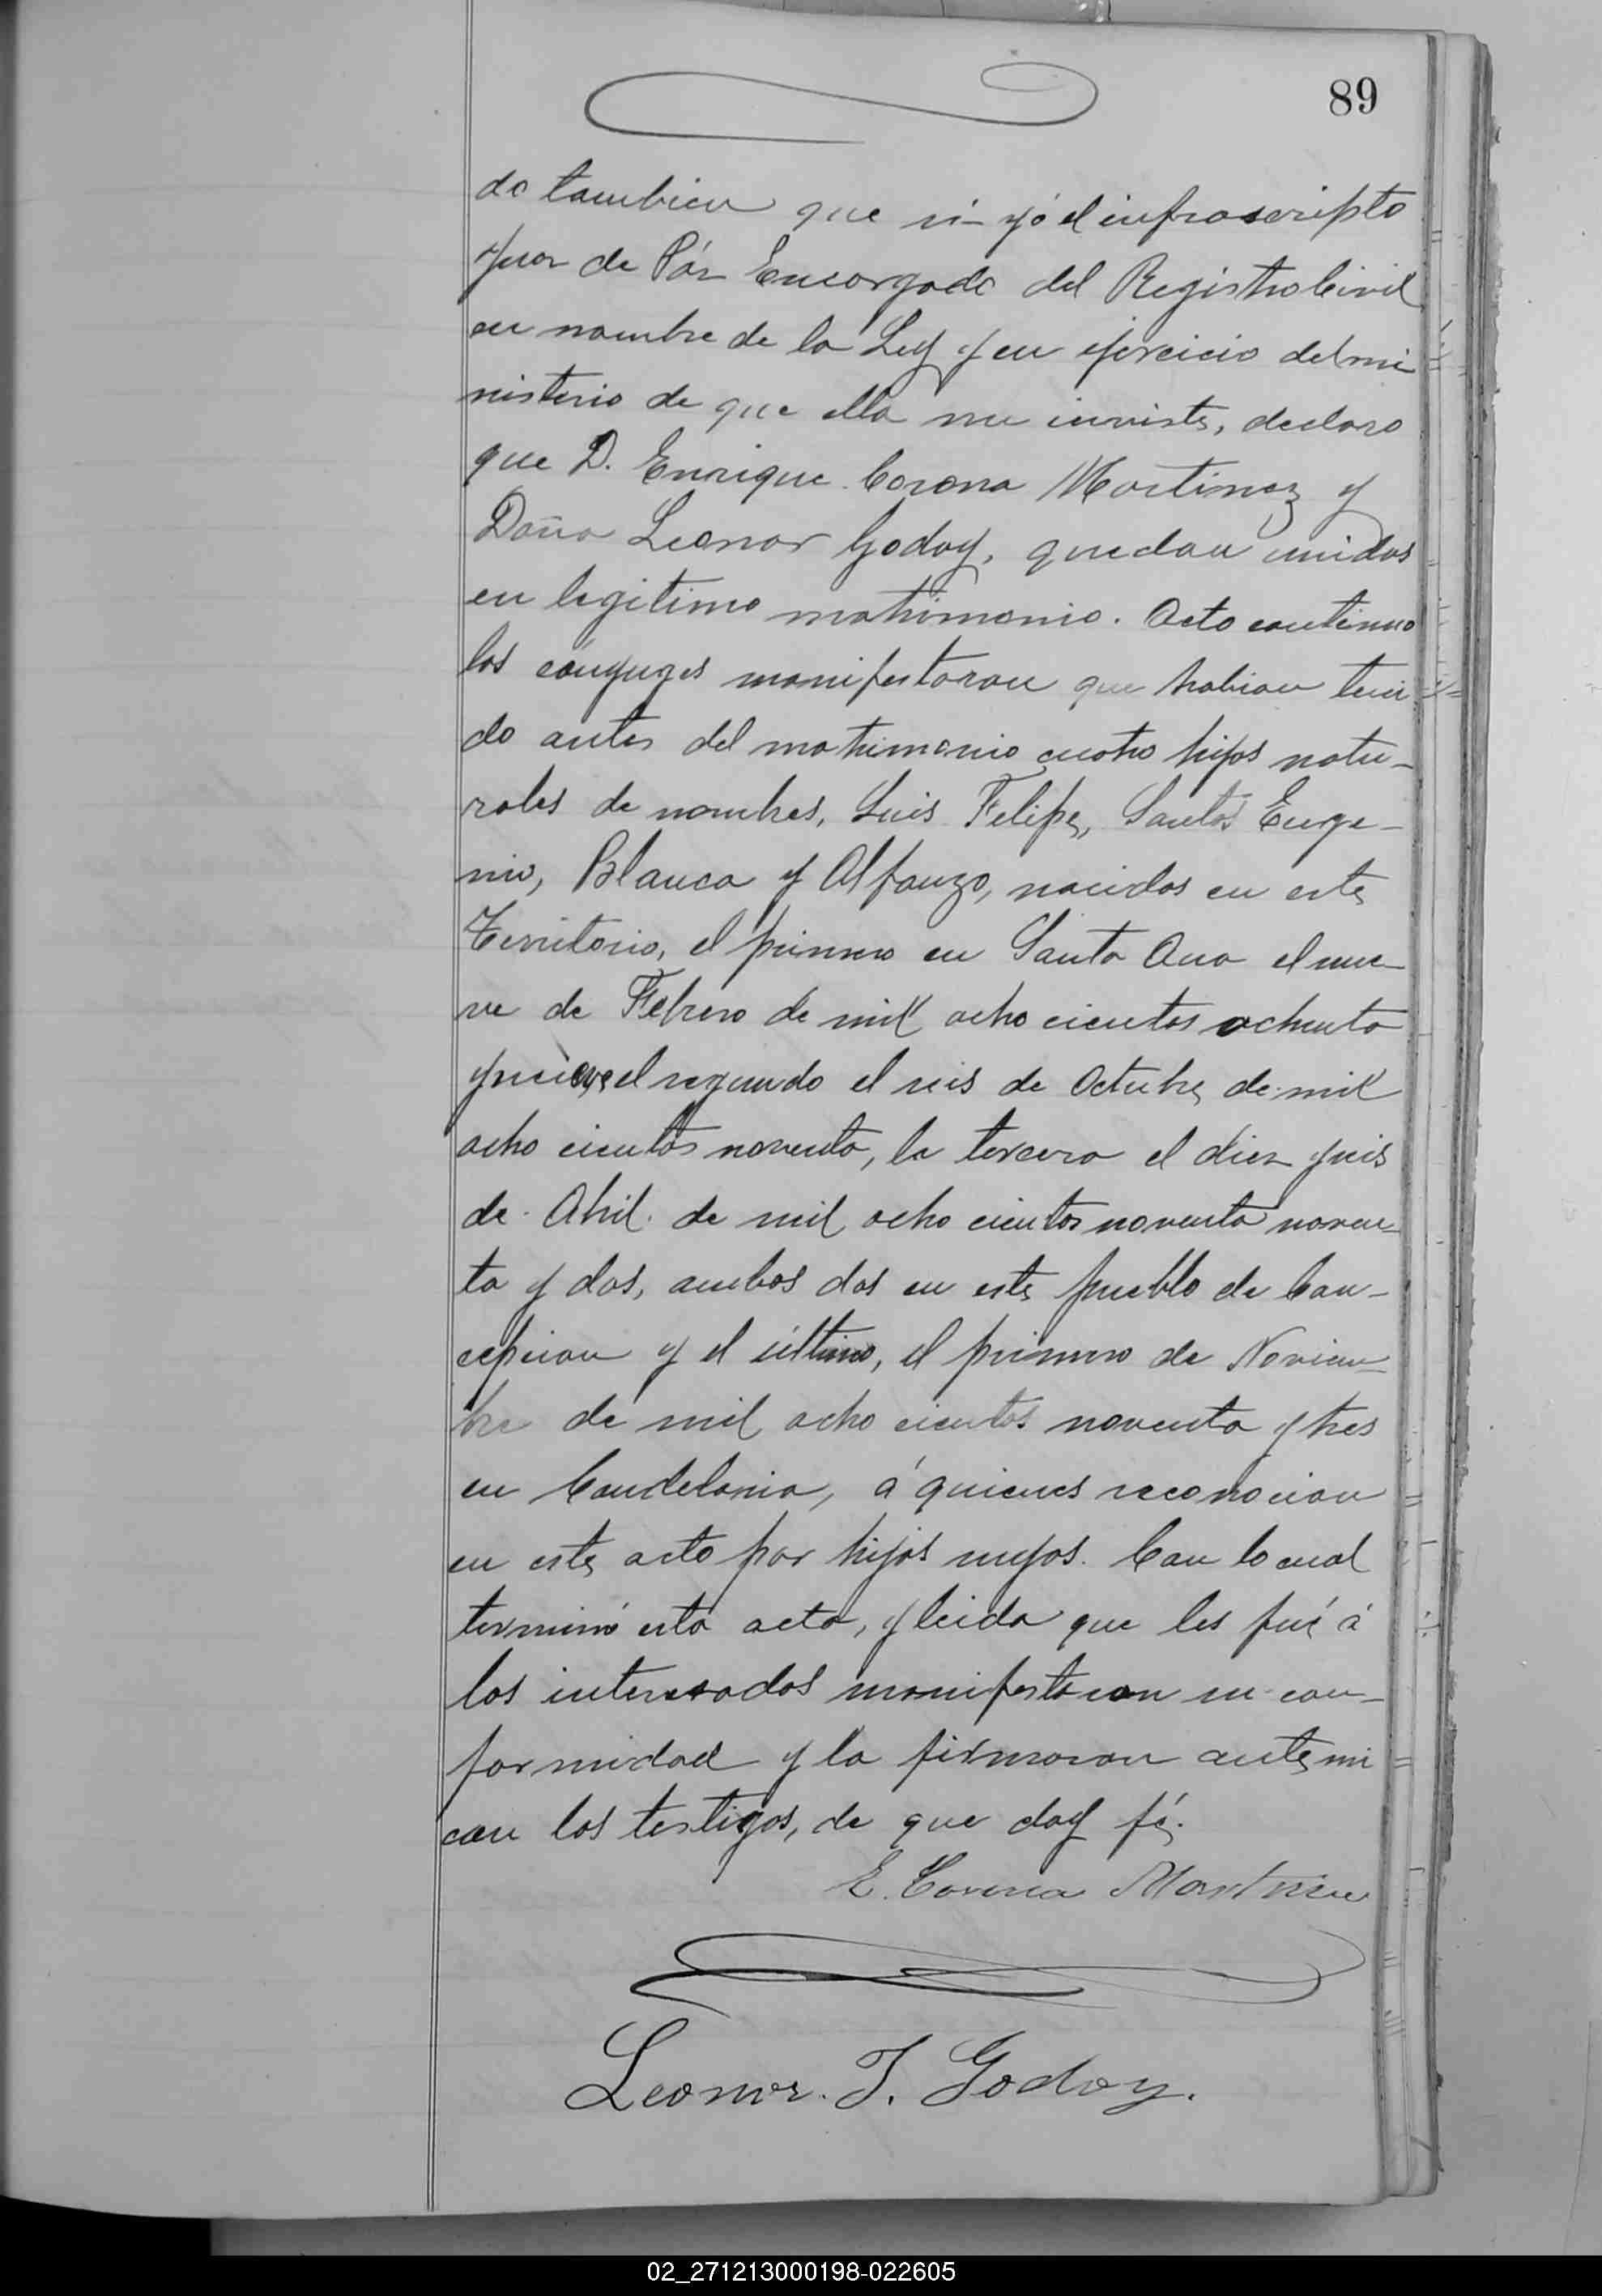 89
do tambien que si yó el infrascripto
Juez de Páz Encargado del Registro Civil
en nombre de la Ley y en ejercicio del mi
nisterio de que ella me inviste, declaro
que D. Enrique Corona Martinez y
Doña Leonor Godoy, quedan unidos
en legitimo matrimonio. Acto continuo
los cónyuges manifestaron que habian teni
do antes del matrimonio cuatro hijos natu-
rales de nombres, Luis Felipe, Santos Euge-
nio, Blanca y Alfonzo, nacidos en este
Territorio, el primero en Santa Ana el nue-
ve de Febrero de mil ocho cientos ochenta
y nueve, el segundo el seis de Octubre de mil
ocho cientos noventa, la tercera el diez y seis
de Abril de mil ocho cientos noventa noven-
ta y dos, ambos dos en este pueblo de Con-
cepcion y el último, el primero de Noviem-
bre de mil ocho cientos noventa y tres
en Candelaria, á quienes reconocian
en este acto por hijos suyos. Con lo cual
terminó esta acta, y leida que les fué á
los interesados manifestaron su con-
formidad y la firmaron ante mi
con los testigos, de que doy fé.
E. Corona Martinez
Leonor. T. Godoy.
02_271213000198-022605